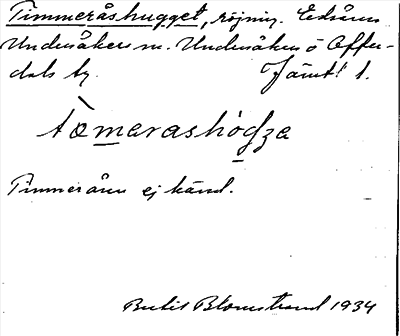 Timmeråshugget, röjnin. Edsåsen
Undersåkers sn. Undersåkers o Offer-
dals tg. Jämtl. l.
tömerashògza
Timmeråsen ej känd.
Bertil Blomstrand 1934